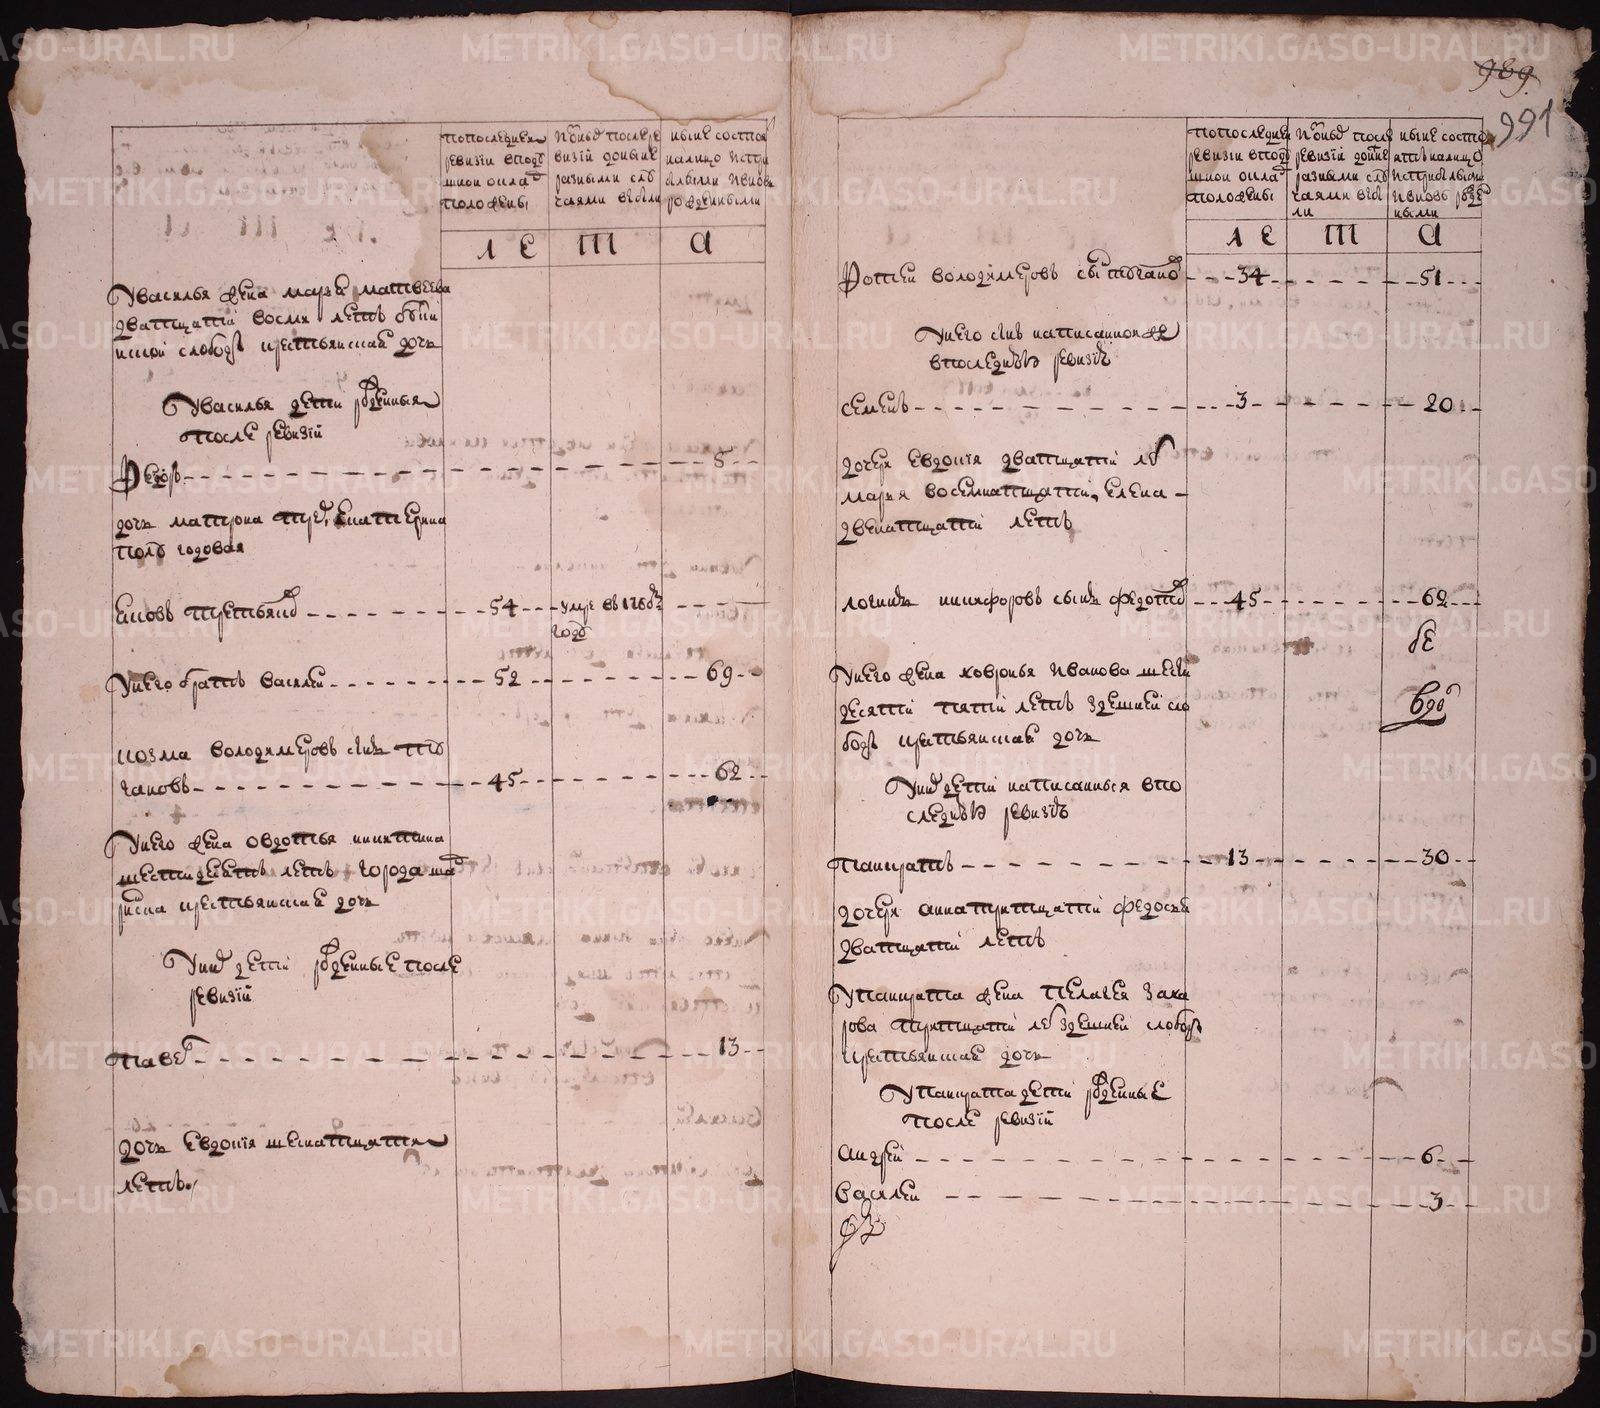 по последнеи
ревизии вподу
шнои оклад
положены
После
ревизии доныне
разными слу
чаями выбыли
ныне состоя
налицо
рожденными
л е т а
У василья жена марья матвеева
дватцати восми летъ
слободы крестьянская дочь
У василья дети рожденныя
после ревизии
Федоръ 5
дочь матрона екатерина
полу годовая
Яковъ третьяков 54 умре в 176
году
У него братъ василеи 52 69
козма володимеровъ сынъ
чаковъ 45 62
У него жена овдотья никитина
шестидесятъ летъ города
крестьянская дочь
У них дети рожденные после
ревизии
павел 13
дочь евдокия шеснатцати
летъ
989
991
по последнеи
ревизии вподу
шнои оклад
положены
после
ревизии
разными слу
чаями выбы
ли
ныне состо
налицо
и вновь рожде
ными
л е т а
Фотеи володимеровъ сынъ 34 51
У него сынъ написанной же
в последнеи ревизии
семенъ 3 20
дочеря евдокия дватцати ле
марья восемнатцати, елена
двенатцати летъ
логинъ никифоровъ сынъ федотов 45 62
У него жена ховронья иванова шесть
десяти пяти летъ здешнеи сло
боды крестьянская дочь
У них дети написанныя в по
следнеи ревизии
панкратъ 13 30
дочеря анна тритцати федосья
дватцати летъ
У панкрата жена пелагея заха
рова тритцати ле здешнеи слободы
крестьянская дочь
У панкрата дети рожденные
после ревизии
андреи 6
василеи 3
METRIKI.GASO-URAL.RU